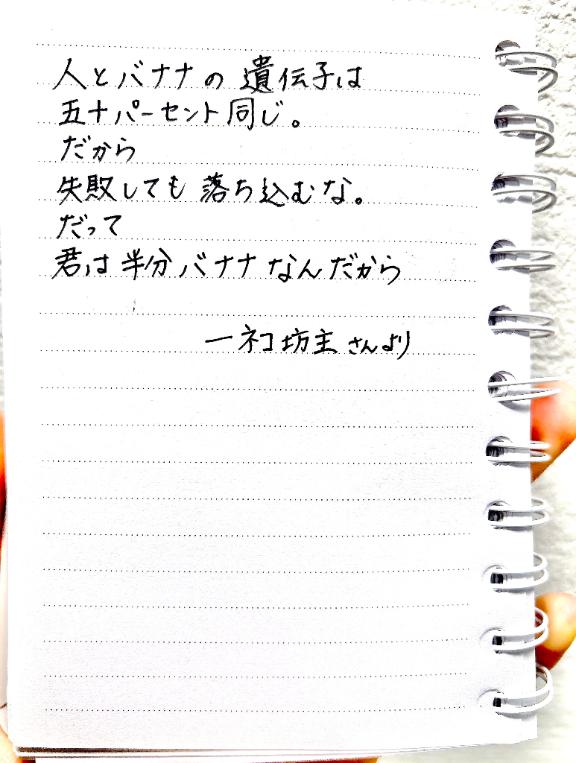 人とバナナの遺伝子は
五十パーセント同じ。
だから
失敗しても落ち込むな。
だって
君は半分バナナなんだから
ーネコ坊主さんより